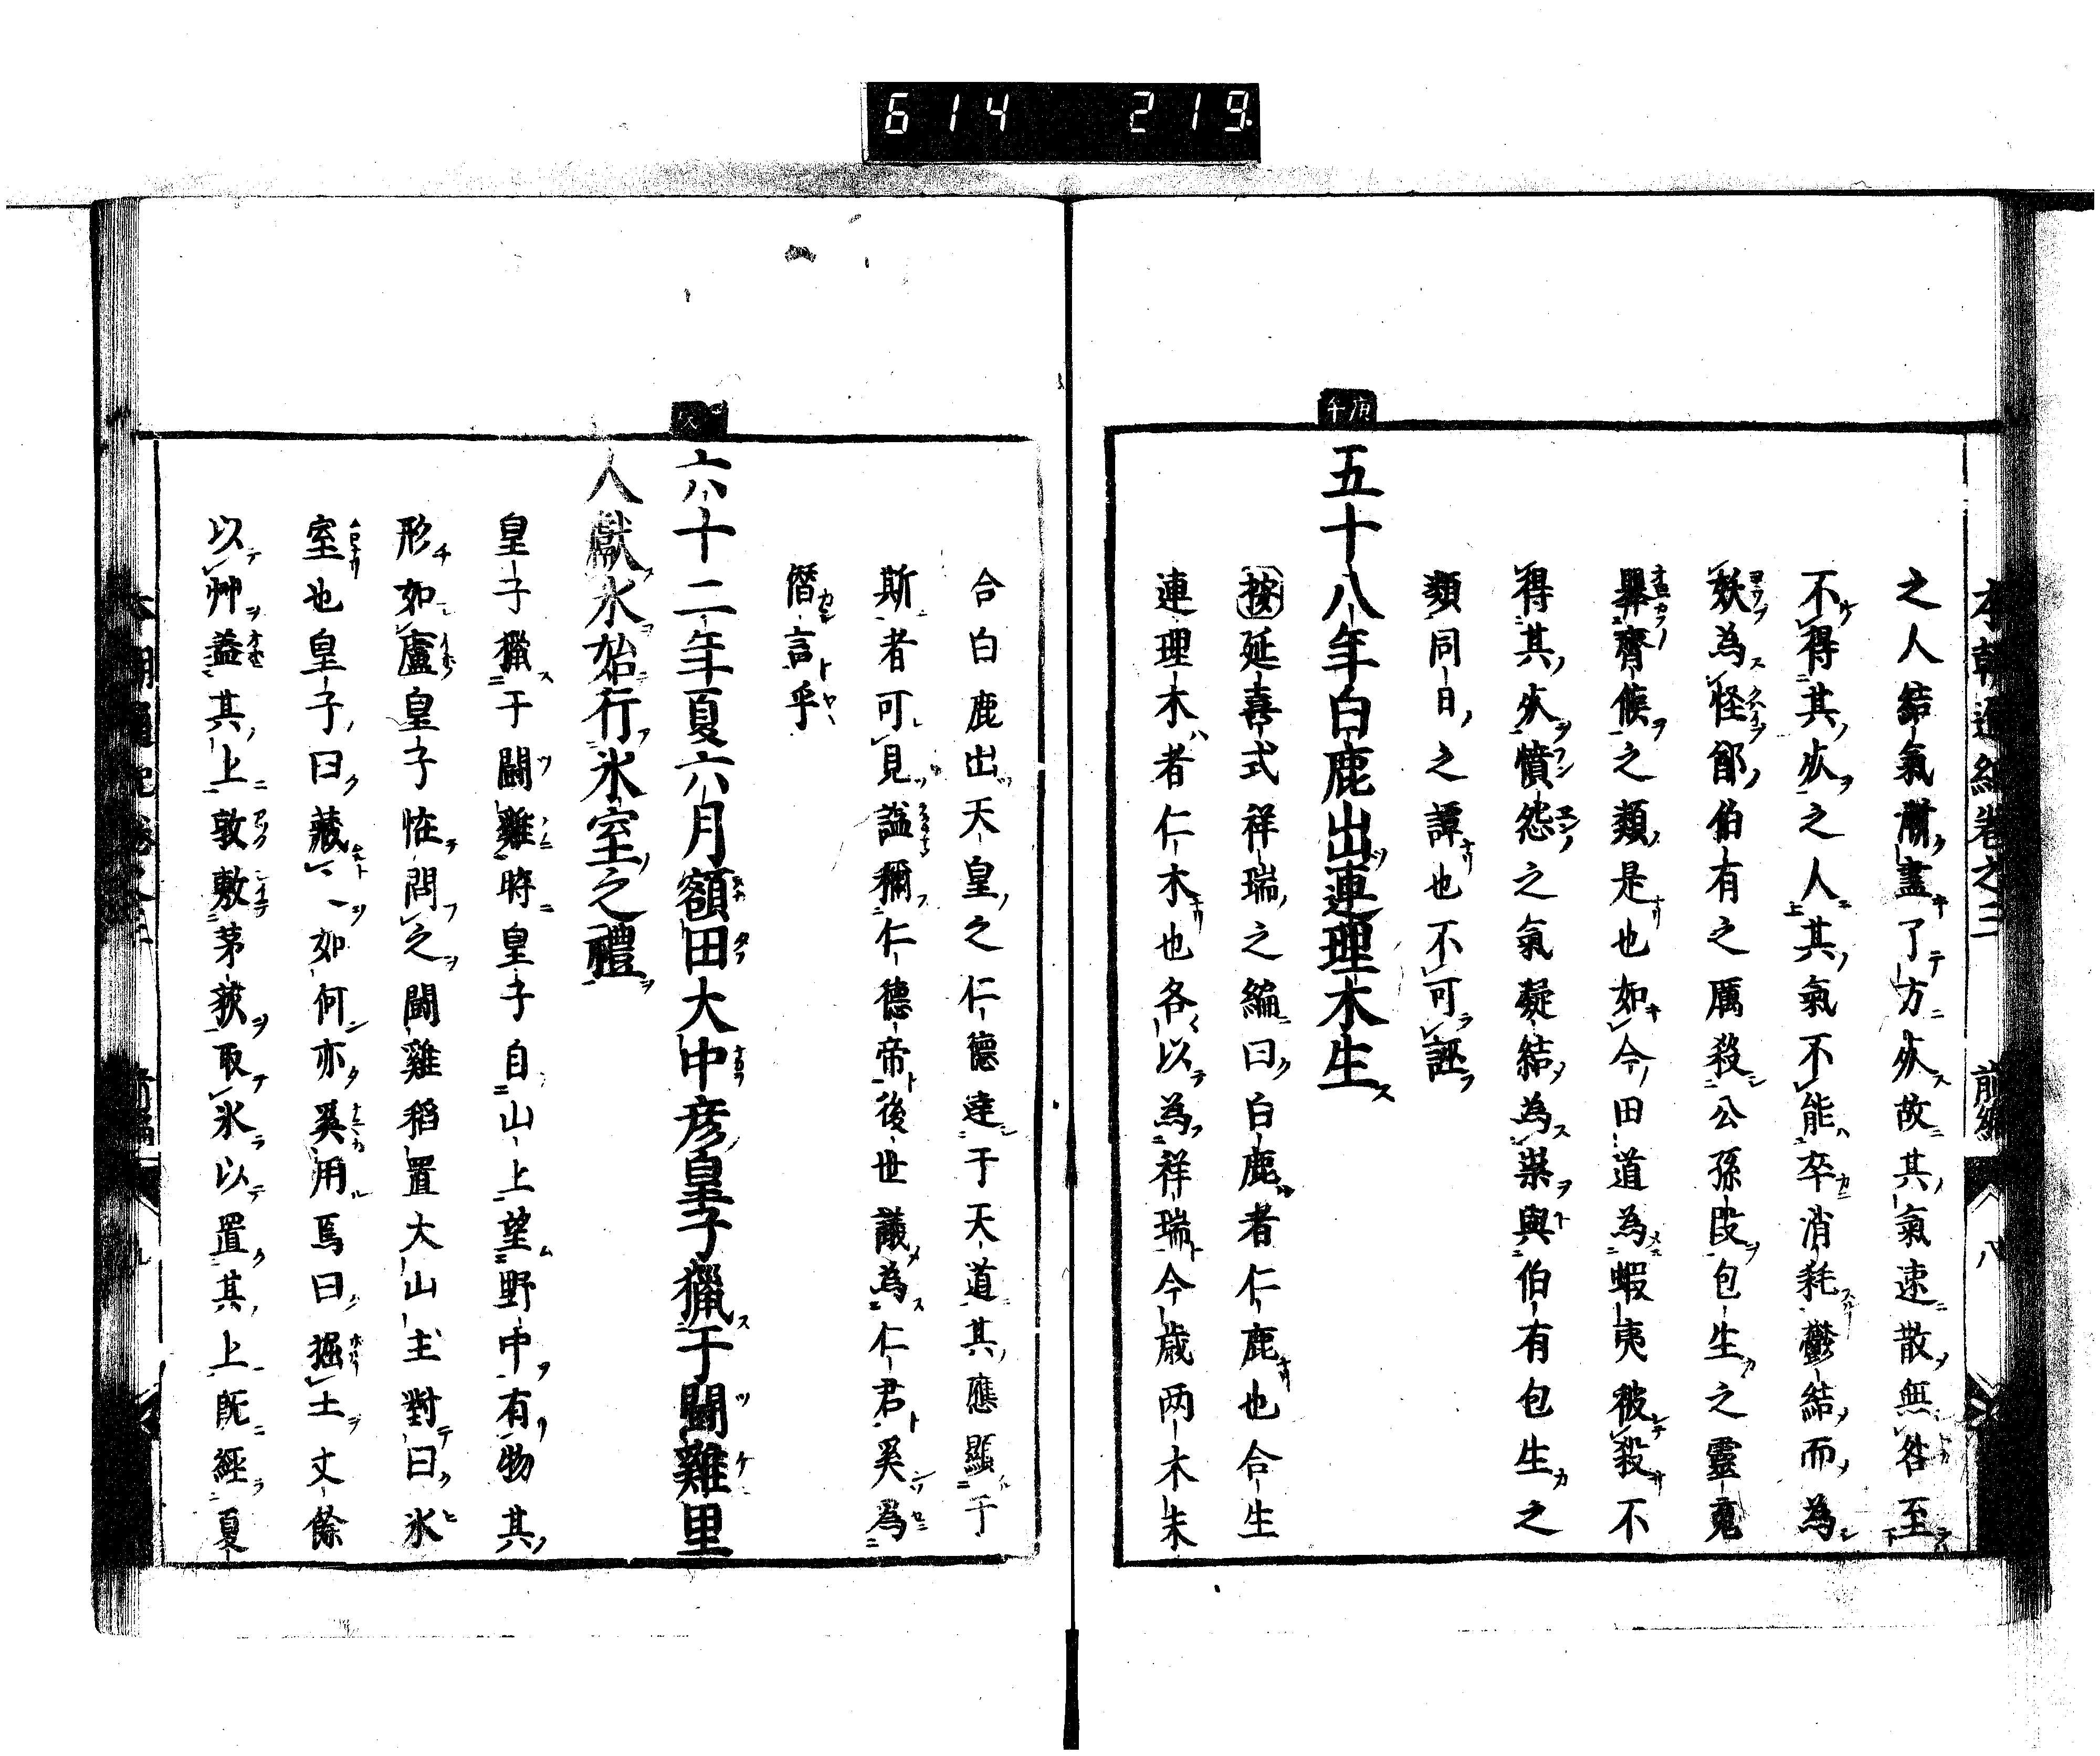 614 219
之人結氣漸盡了方死故其氣速散無咎至
不得其死之人其氣不能卒消耗鬱結而為
妖為怪鄭伯有之厲殺公孫段包生之靈鬼
齊侯之類是也如今田道為蝦夷被殺不
得其死憤怨之氣凝結為祟與伯有包生之
類同日之譚也不可誣
庚午
五十八年白鹿出連理木生
按延喜式祥瑞之編曰白鹿者仁鹿也合生
連理木者仁木也各以為祥瑞今歲兩木朱
合白鹿出天皇之仁德達于天道其應顯于
斯者可見謚稱仁德帝後世議為仁君奚為
僭言乎
六十二年夏六月額田大中彦皇子獵于鬪雞里
人獻氷始行氷室之禮
皇子獵于鬪雞時皇子自山上望野中有物其
形如廬皇子恠問之鬪雞稻置大山主對曰氷
室也皇子曰藏如何亦奚用焉曰掘土丈餘
以艸蓋其上敦敷茅荻取氷以置其上既經夏